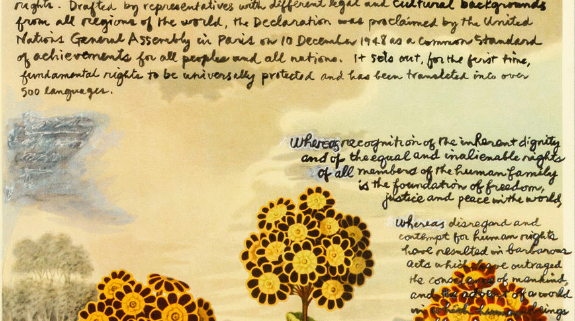 rights. Drafted by representatives with different legal and cultural backgrounds
from all regions of the world, the Declaration was proclaimed by the United
Nations General Assembly in Paris on 10 December 1948 as a common standard
of achievements for all peoples and all nations. It sets out, for the first time,
fundamental rights to be universally protected and has been translated into over
500 languages.
Whereas recognition of the inherent dignity
and of the equal and inalienable rights
of all members of the human family
is the foundation of freedom,
justice and peace in the world,
whereas disregard and
contempt for human rights
have resulted in barbarous
acts which have outraged
the conscience of mankind,
and the advent of a world
in which human beings